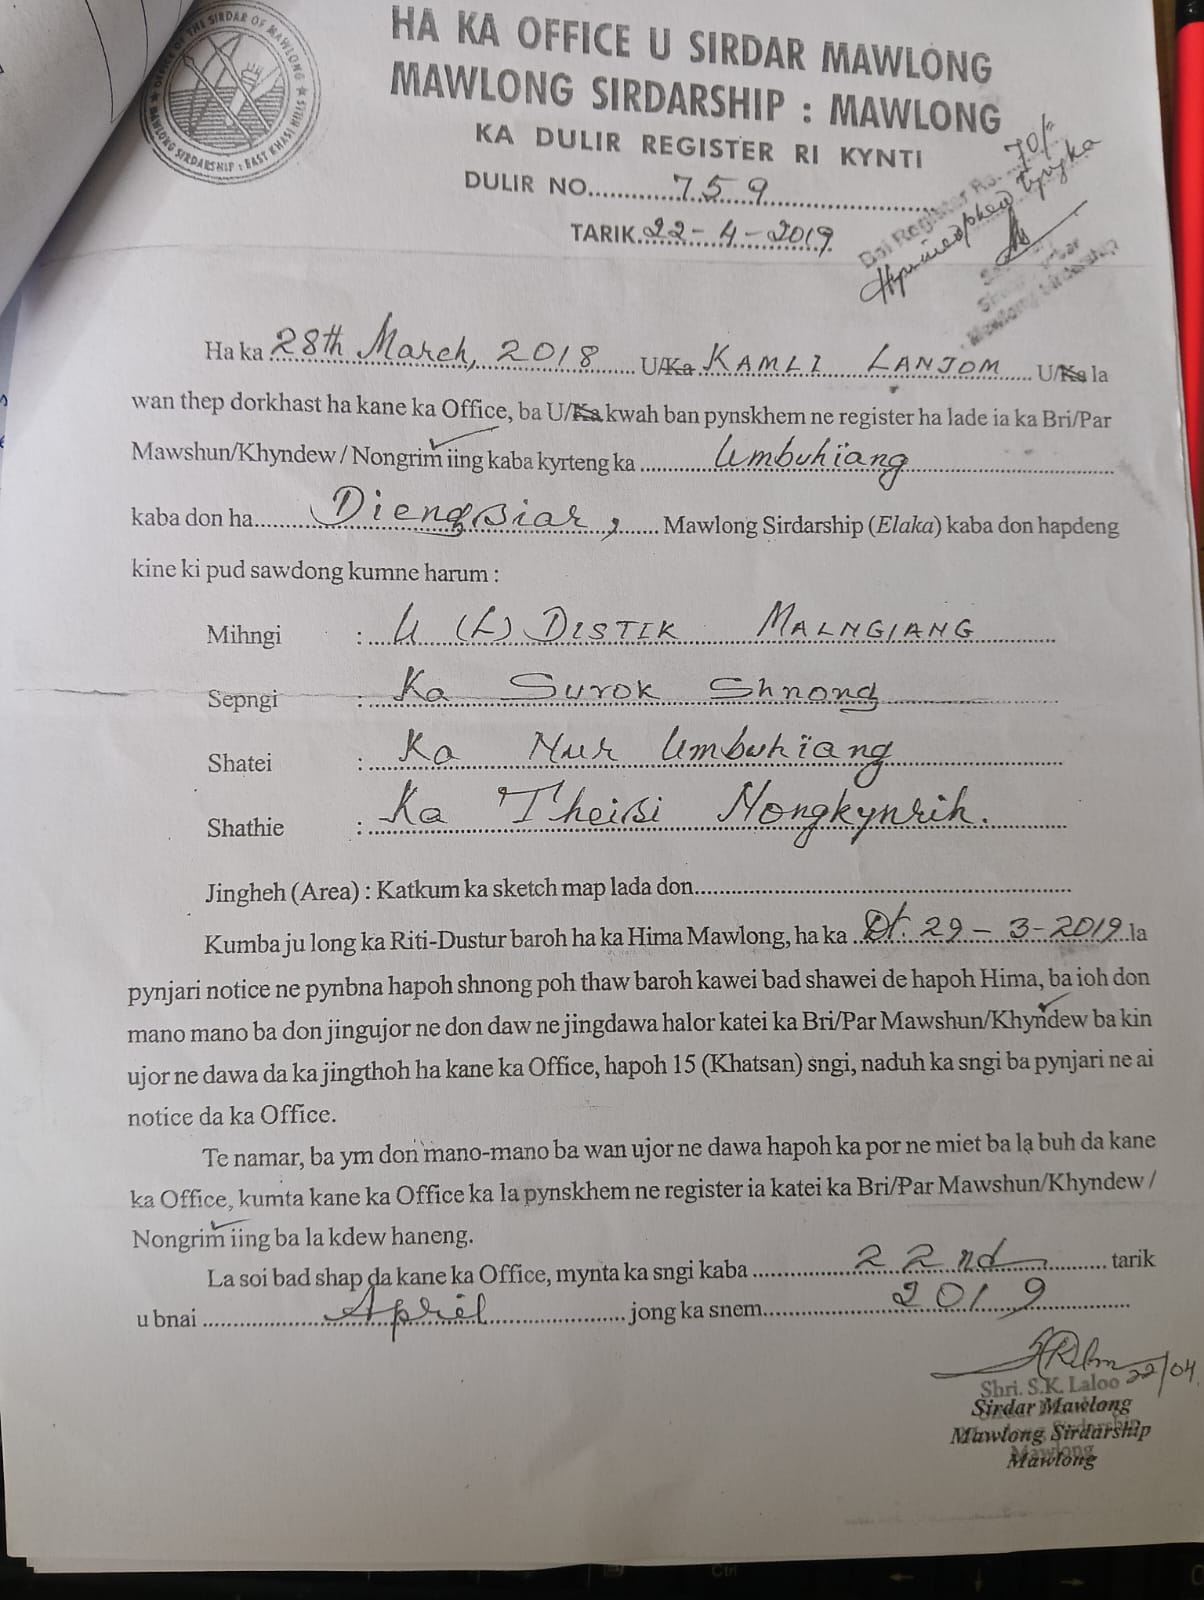 OFFICE OF THE SIRDAR OF MAWLONG
MAWLONG SIRDARSHIP : EAST KHASI HILLS
HA KA OFFICE U SIRDAR MAWLONG
MAWLONG SIRDARSHIP : MAWLONG
KA DULIR REGISTER RI KYNTI
DULIR NO. 759
TARIK 22-4-2019
Bai Register Rs. 70/-
Hynñiewphew tyngka
Mawlong Sirdarship
Ha ka 28th March, 2018 U/Ka KAMLI LANJOM U/Ka la
wan thep dorkhast ha kane ka Office, ba U/Ka kwah ban pynskhem ne register ha lade ia ka Bri/Par
Mawshun/Khyndew / Nongrim iing kaba kyrteng ka Umbuhïang
kaba don ha Diengsiar, Mawlong Sirdarship (Elaka) kaba don hapdeng
kine ki pud sawdong kumne harum :
Mihngi : U (L) DISTIK MALNGIANG
Sepngi : Ka Surok Shnong
Shatei : Ka Nur Umbuhïang
Shathie : Ka Theisi Nongkynrih.
Jingheh (Area) : Katkum ka sketch map lada don
Kumba ju long ka Riti-Dustur baroh ha ka Hima Mawlong, ha ka Dt. 29-3-2019 la
pynjari notice ne pynbna hapoh shnong poh thaw baroh kawei bad shawei de hapoh Hima, ba ioh don
mano mano ba don jingujor ne don daw ne jingdawa halor katei ka Bri/Par Mawshun/Khyndew ba kin
ujor ne dawa da ka jingthoh ha kane ka Office, hapoh 15 (Khatsan) sngi, naduh ka sngi ba pynjari ne ai
notice da ka Office.
Te namar, ba ym don mano-mano ba wan ujor ne dawa hapoh ka por ne miet ba la buh da kane
ka Office, kumta kane ka Office ka la pynskhem ne register ia katei ka Bri/Par Mawshun/Khyndew /
Nongrim iing ba la kdew haneng.
La soi bad shap da kane ka Office, mynta ka sngi kaba 22nd tarik
u bnai April jong ka snem 2019
22/04
Shri. S.K. Laloo
Sirdar Mawlong
Mawlong Sirdarship
Mawlong